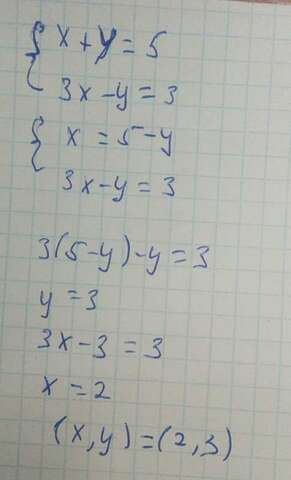 { x + y = 5
3x - y = 3
{ x = 5 - y
3x - y = 3
3(5-y) - y = 3
y = 3
3x - 3 = 3
x = 2
(x,y) = (2,3)